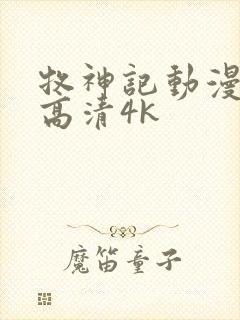 牧神記動漫
高清4K
魔笛童子